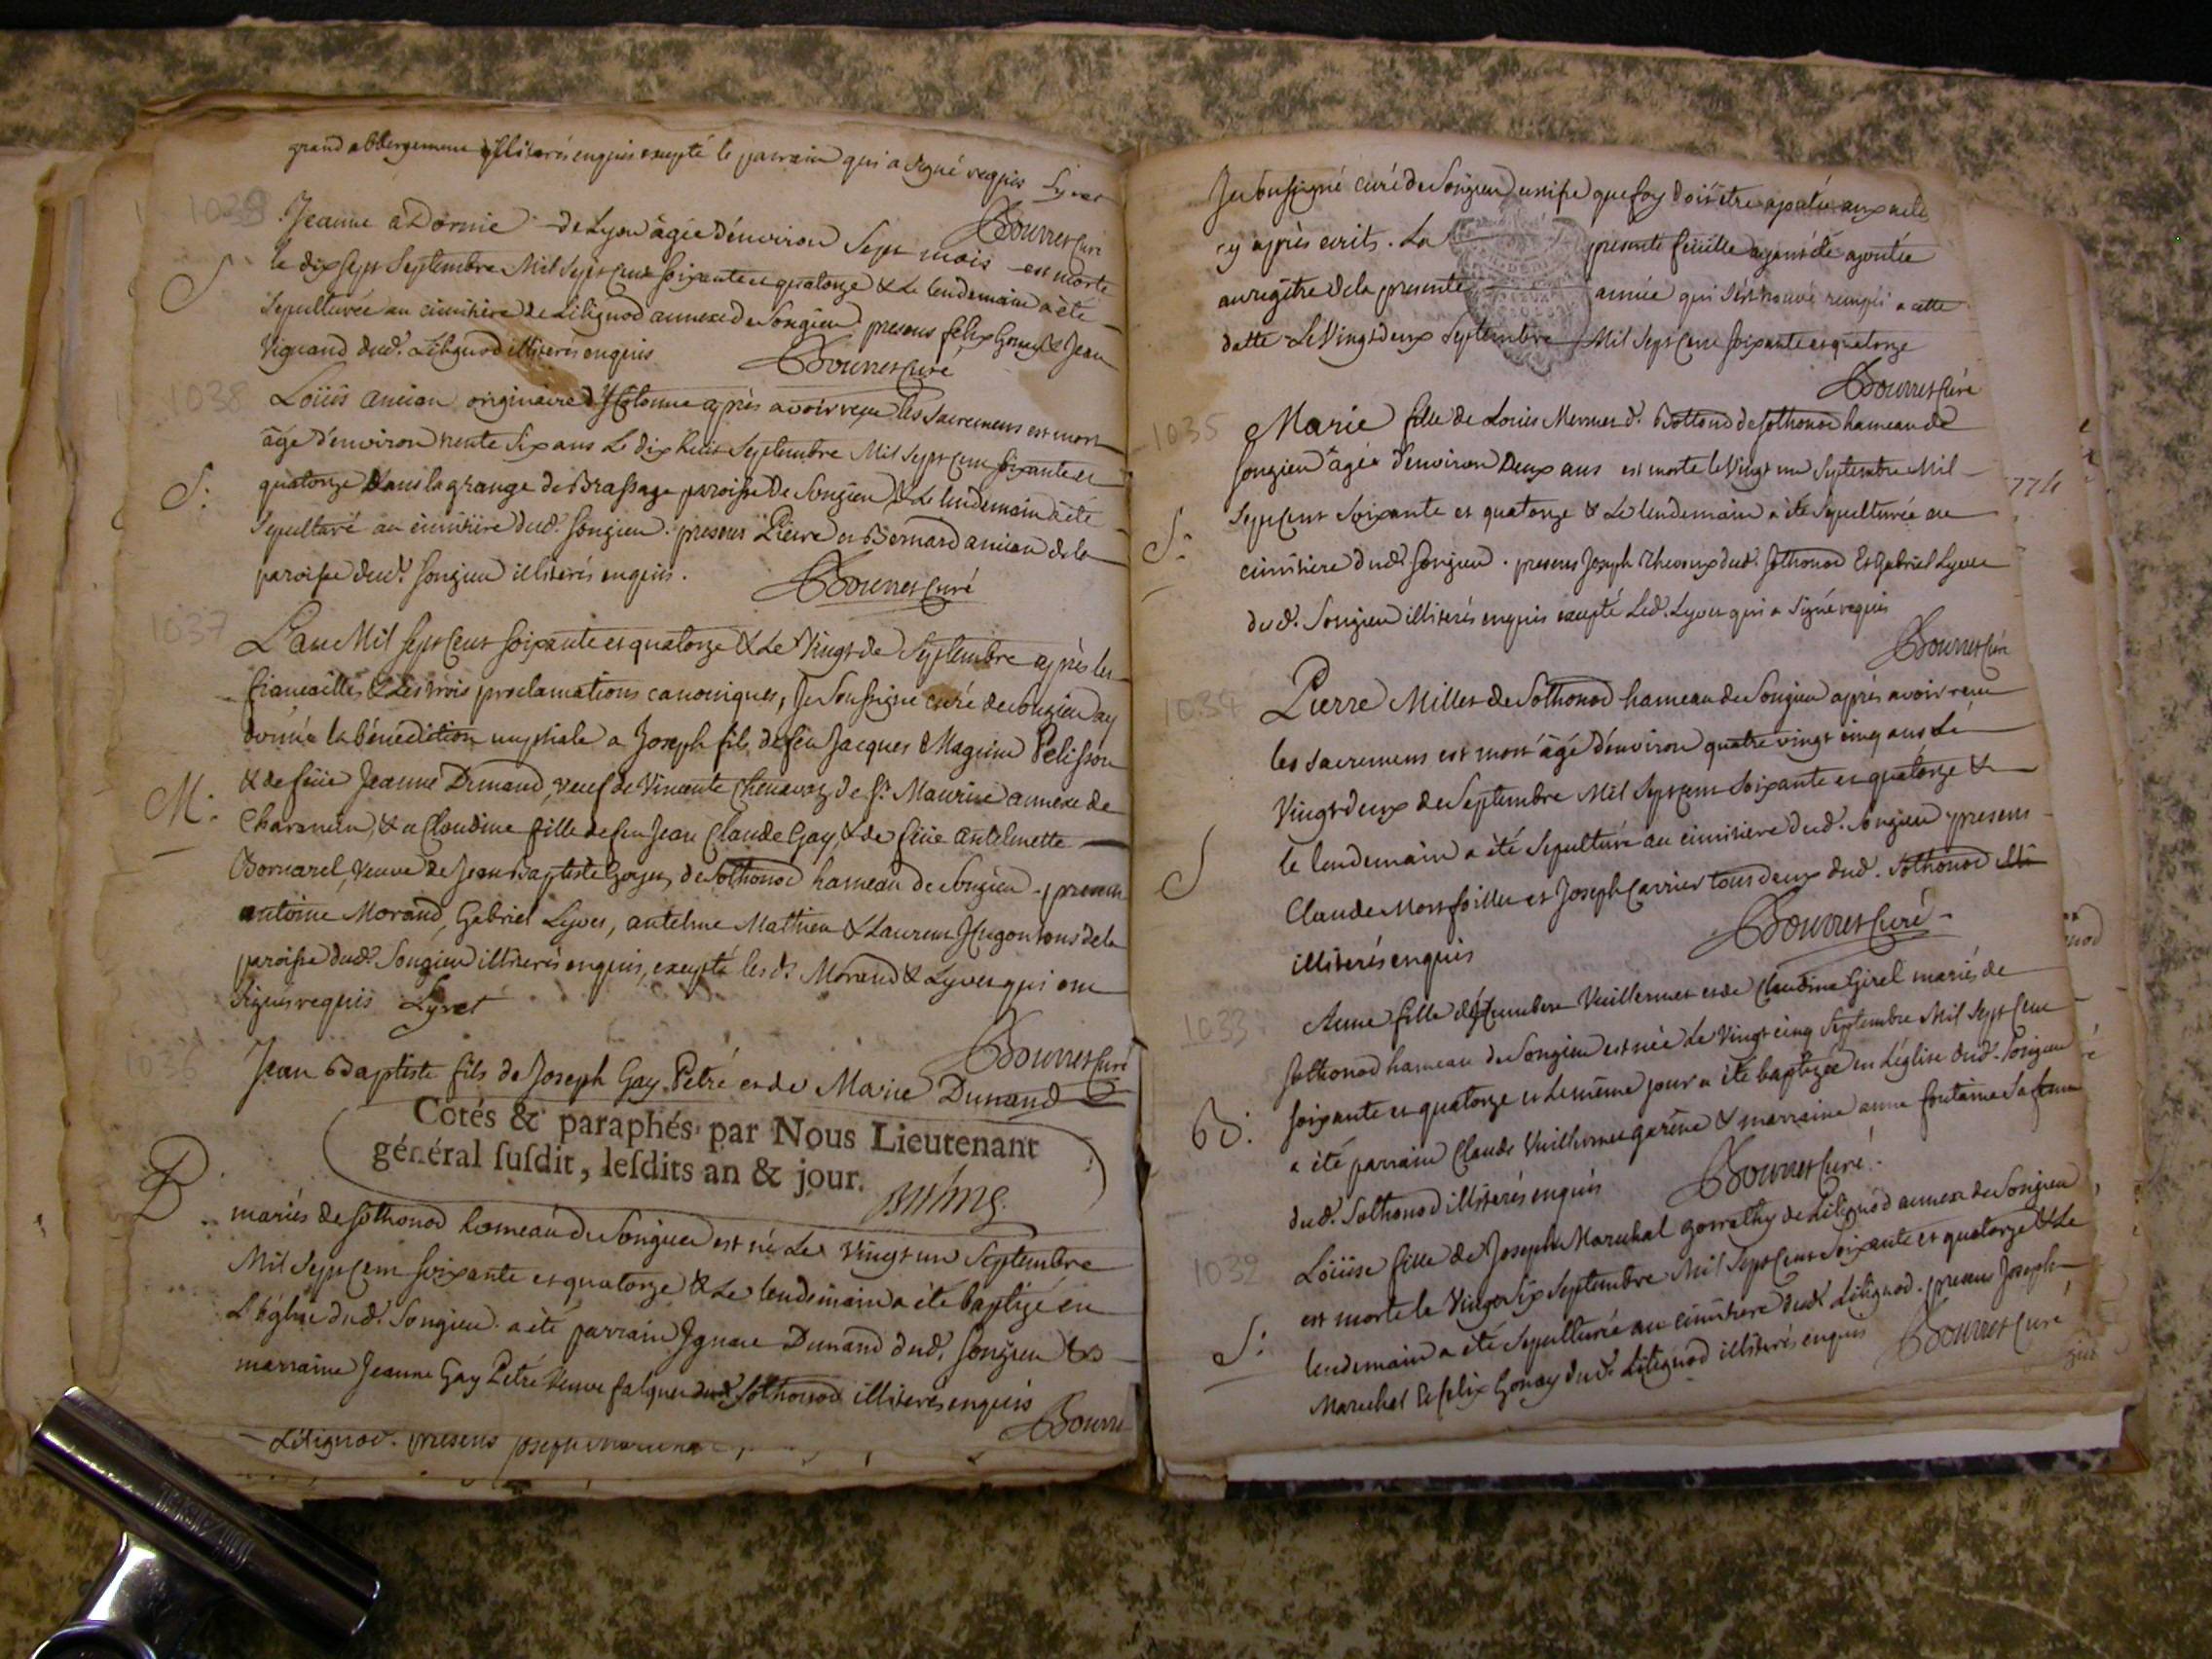 grand abbergement illiterés enquis excepté le parrain qui a signé requis Lyvet
Bourret Curé
1039
Jeanne aDornie de Lyon âgée d'environ Sept mois est morte
le dix Sept Septembre Mil Sept Cent Soixante et quatorze & Le lendemain a été
S
Sepulturée au cimitiere de Lilignod annexe de Songieu. presens felix Gonay & Jean
Viguand dud. Lilignod illiterés enquis
Bourret Curé
1038
Loüis ancian originaire d' après avoir reçu les Sacremens est mort
âgé d'environ trente Six ans Le dix huit Septembre Mil Sept Cent Soixante et
S.
quatorze Dans la grange de Brassage paroisse De Songieu & Le lendemain a été
Sepulturé au cimitiere dud. Songieu. presens Pierre et Bernard ancian de la
paroisse dud. Songieu illiterés enquis.
Bourret Curé
1037
L'an Mil Sept Cent Soixante et quatorze & Le Vingt de Septembre après les
fiancailles & Les trois proclamations canoniques, Je Soussigné curé de Songieu ay
donné la bénédiction nuptiale a Joseph fils de feu Jacques Magnin Pelisson
M:
& de feüe Jeanne Dunand, veuf de Vincente Chenavaz de St. Maurice annexe de
Charancin, & a Claudine fille de feu Jean Claude Gay, & de feüe Antelmette
Bornarel, Veuve de Jean Baptiste Goyet, de Sothonod hameau de Songieu. presens
antoine Morand, Gabriel Lyvet, antelme Mathieu & Laurent Hugon tous de la
paroisse dud. Songieu illiterés enquis, excepté les d. Morand & Lyvet qui ont
Signés requis Lyvet
Bourret Curé
1036
Jean Baptiste fils de Joseph Gay Petré et de Marie Dunand
Cotés & paraphés par Nous Lieutenant
général susdit, lesdits an & jour.
B
mariés de Sothonod hameau de Songieu est né Le Vingt un Septembre
Mil Sept Cent Soixante et quatorze & Le lendemain a été baptizé en
L'église dud. Songieu. a été parrain Ignace Dunand dud. Songieu &
marraine Jeanne Gay Petré Veuve falquet dud. Sothonod illiterés enquis
Bourret
Lilignod. presens Joseph Marechal
Je Soussigné curé de Songieu certifie que foy doit être ajoutée aux actes
cy après ecrits. La presente feüille ayant été ajoutée
au regitre de la presente année qui s'est trouvé rempli a cette
datte Le Vingt deux Septembre Mil Sept Cent Soixante et quatorze
Bourret Curé
1035
Marie fille de Loüis Mermet d. Bottond de Sothonod hameau de
Songieu âgée d'environ Deux ans est morte le Vingt un Septembre Mil
1774
Sept Cent Soixante et quatorze & Le lendemain a été Sepulturée au
S.
cimitiere dud. Songieu. presens Joseph Thevoux dud. Sothonod Et Gabriel Lyvet
dud. Songieu illiterés enquis excepté Led. Lyvet qui a Signé requis
Bourret Curé
1034
Pierre Millet de Sothonod hameau de Songieu après avoir reçu
les Sacremens est mort âgé d'environ quatre vingt cinq ans Le
Vingt deux de Septembre Mil Sept Cent Soixante et quatorze &
S
le lendemain a été Sepulturé au cimitiere dud. Songieu presens
Claude Montfoillet et Joseph Carrier tous deux dud. Sothonod
illiterés enquis
Bourret Curé
1033
Anne fille de Vuillermet et de Claudine Girel mariés de
Sothonod hameau de Songieu est née Le Vingt cinq Septembre Mil Sept Cent
B:
soixante et quatorze et Le même jour a été baptizée en L'église dud. Songieu
a été parrain Claude Vuillermet garine & marraine anne fontaine Sa femme
dud. Sothonod illiterés enquis
Bourret Curé
1032
Loüise fille de Joseph Marechal gorrathy de Lilignod annexe de Songieu
est morte le Vingt Six Septembre Mil Sept Cent Soixante et quatorze & Le
S.
lendemain a été Sepulturée au cimitiere dud. Lilignod. presens Joseph
Marechal & felix Gonay dud. Lilignod illiterés enquis
Bourret Curé